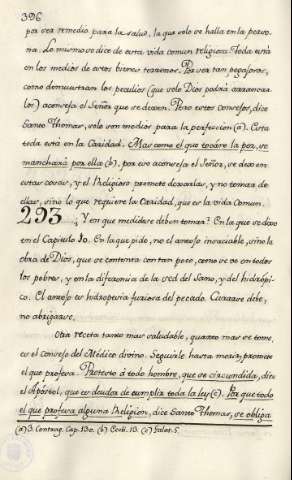 396
por ser remedio para la salud, la que solo se halla en la perso-
na. Lo mismo se dice de esta vida comun religiosa. Toda está
en los medios de estos bienes terrenos. Por ser tan pegajosos,
como demuestran los peculios (que solo Dios podrá arrancar
los) aconseja el Señor que se dexen. Pero estos consejos, dice
Santo Thomas, solo son medios para la perfeccion (a). Esta
toda está en la Caridad. Mas como el que tocáre la pez, se
manchará por ella (b), por eso aconseja el Señor, se dexen
estas cosas, y el Religioso promete dexarlas, y no tomar de
ellas, sino lo que requiere la Caridad, que es la vida Comun.
293 ¿Y en que medida se deben tomar? En la que se dexo
en el Capitulo 10. En la que pide, no el antojo insaciable, sino la
obra de Dios, que se contenta con tan poco, como se ve en todos
los pobres, y en la diferencia de la sed del Sano, y del hidrópi-
co. El antojo es hidropesia furiosa del pecado. Curarse debe,
no abrigarse.
Otra receta tanto mas saludable, quanto mas se tome,
es el consejo del Médico divino. Seguirle hasta morir, promete
el que profesa. Protesto á todo hombre, que se circuncida, dice
el Apóstol, que es deudor de cumplir toda la ley (c). Por que todo
el que profesa alguna Religion, dice Santo Thomas, se obliga
(a) 3. Contrag. Cap. 130. (b) Eccli. 13. (c) Galat. 5.